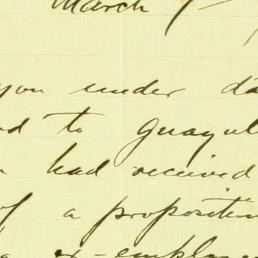 March
you under da
d to guayul
had received
of a proposition
ex-employ